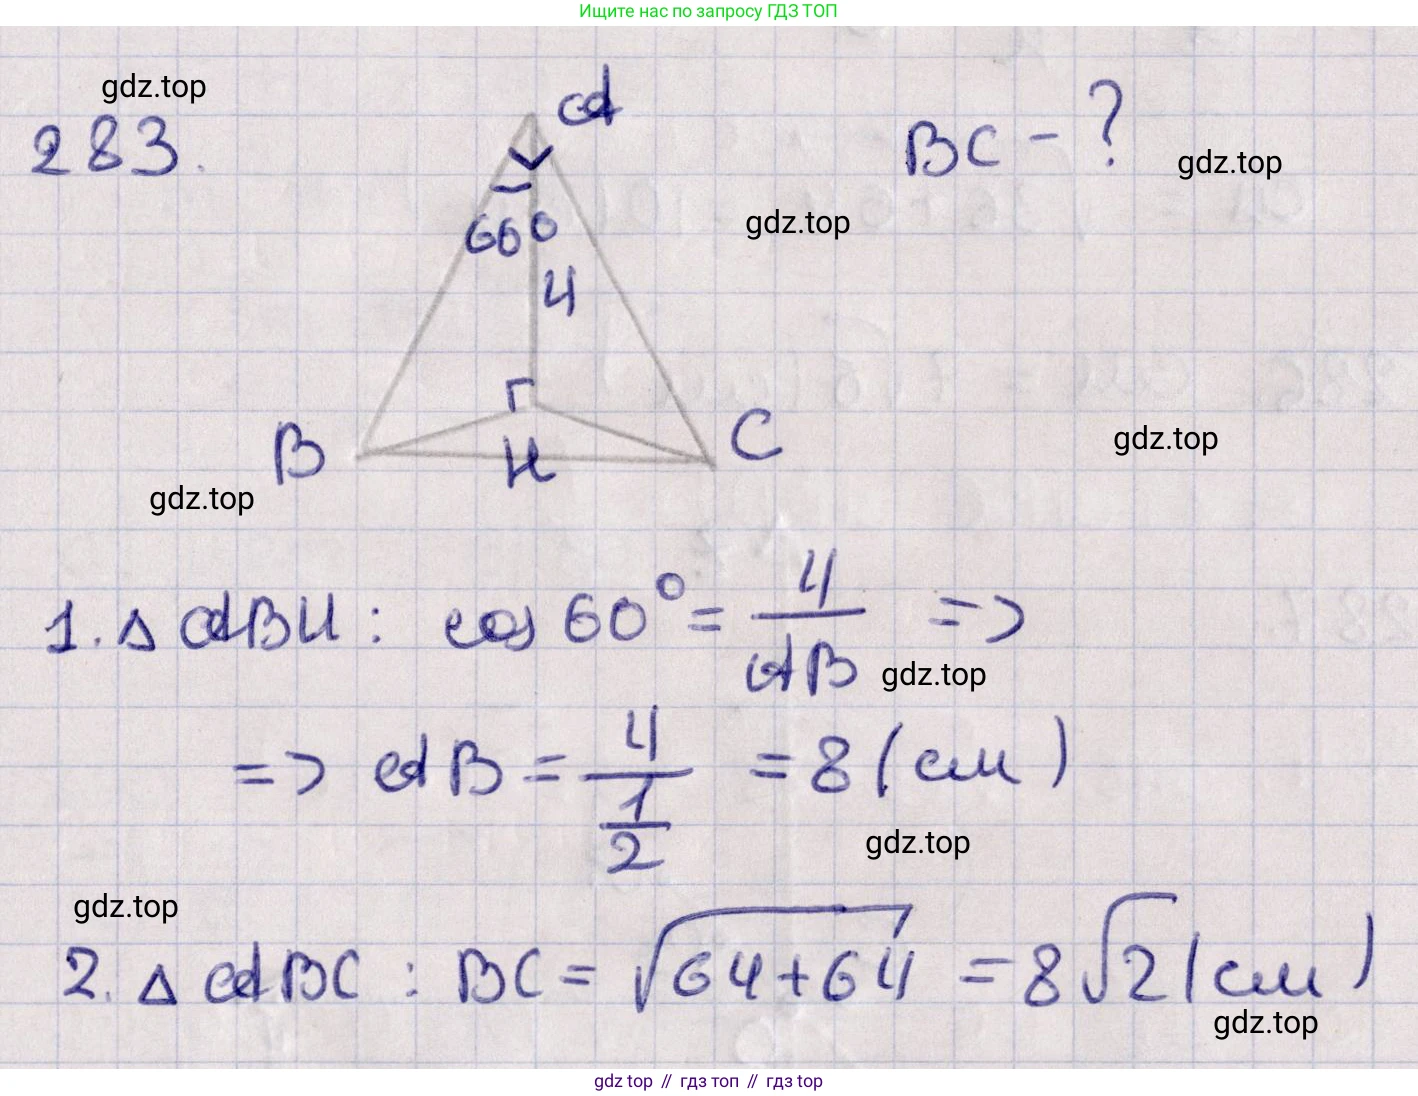 Ищите нас по запросу ГДЗ ТОП
gdz.top
283.
A
BC - ?
gdz.top
gdz.top
60°
4
B
H
C
gdz.top
gdz.top
1. Δ ABH : cos 60° = 4/AB =>
gdz.top
=> AB = 4/(1/2) = 8 (см)
gdz.top
gdz.top
2. Δ ABC : BC = √64+64 = 8√2 (см)
gdz.top
gdz top // гдз топ // гдз top